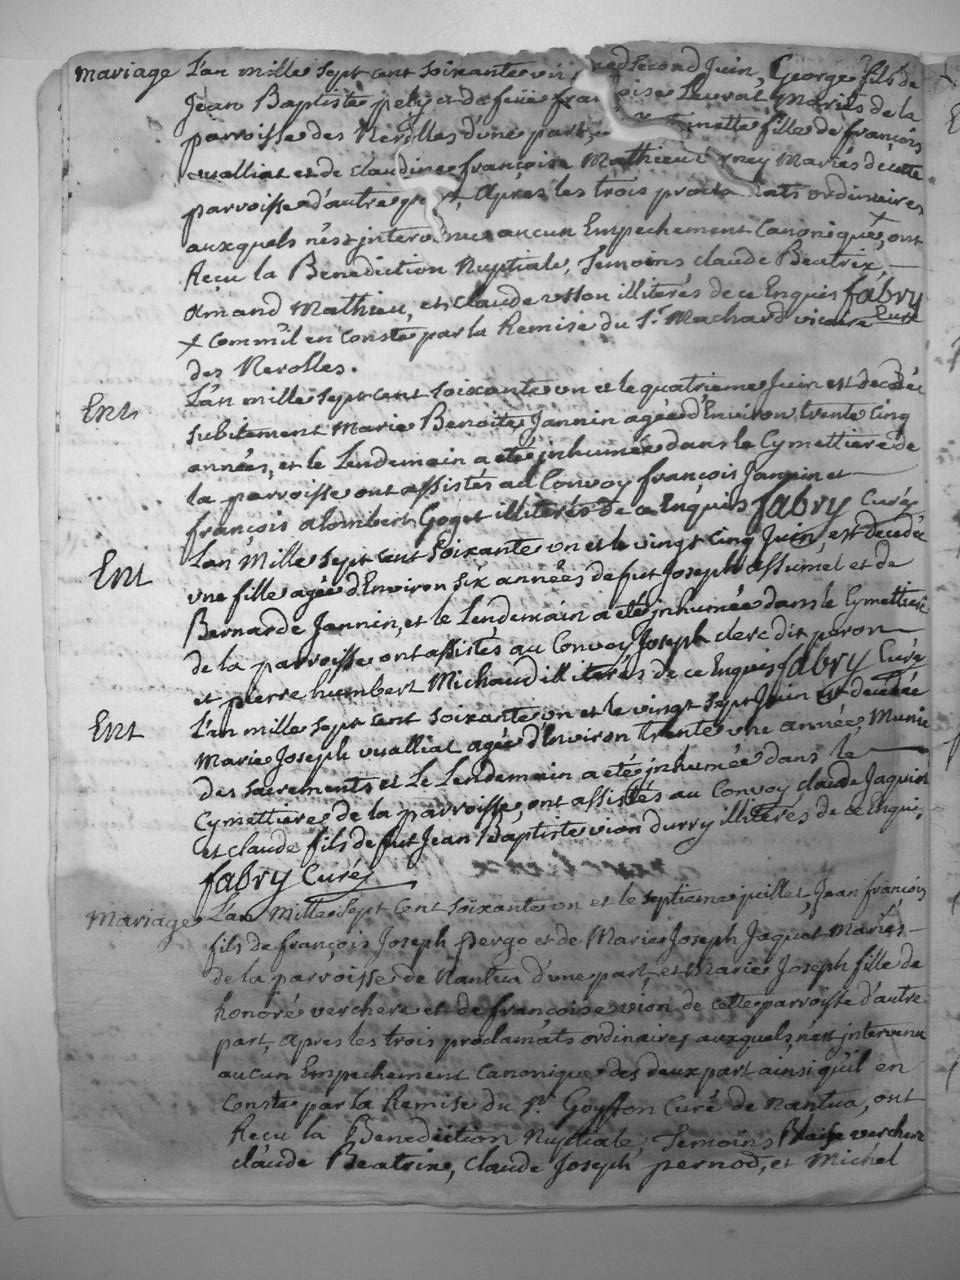 mariage L'an mille sept cent soixante un second Juin, George fils de
Jean Baptiste et de feüe françoise Mariés de la
parroisse des Nerolles d'une part, fille de françois
vualliat et de claudine françoise Mathieu Mariés de cette
parroisse d'autre part, Après les trois proclamats ordinaires
auxquels n'est intervenu aucun Empechement Canonique + ont
Reçu la Benediction Nuptiale, Temoins claude Beatrix,
Amand Mathieu, et claude illiterés de ce Enquis fabry Curé
+ comm'il en conste par la Remise du Sr. Machard vicaire
des Nerolles.
Ent L'an mille sept cent soixante un et le quatrieme Juin est decedée
subitement Marie Benoite Jannin agée d'Environ trente cinq
années, et le Lendemain a eté inhumée dans le Cymettiere de
la parroisse ont assistés au Convoy françois Jannin et
françois alombert Goget illiterés de ce Enquis fabry Curé
Ent L'an Mille sept cent soixante un et le vingt cinq Juin, est decedée
une fille agée d'Environ six années de fut Joseph assumel et de
Bernarde Jannin, et le Lendemain a eté inhumée dans le Cymettiere
de la parroisse ont assistés au Convoy Joseph clerc dit peron
et pierre humbert Michaud illiterés de ce Enquis fabry Curé
Ent L'an mille sept cent soixante un et le vingt sept Juin est decedée
Marie Joseph vualliat agée d'Environ trente une année, Munie
des sacrements et Le Lendemain a eté inhumée dans le
Cymettiere de la parroisse, ont assistés au Convoy claude Jaquin
et claude fils de fut Jean Baptiste vion durry illiterés de ce Enquis
fabry Curé
Mariage L'an Mille sept Cent soixante un et le septieme juillet, Jean françois
fils de françois Joseph pergo et de Marie Joseph Jaquet Mariés
de la parroisse de Nantua d'une part, et Marie Joseph fille de
honoré verchere et de françoise vion de cette parroisse d'autre
part, Apres les trois proclamats ordinaires auxquels n'est intervenu
aucun Empechement Canonique des deux part ainsi qu'il en
Conste par la Remise du Sr. Goyffon Curé de Nantua, ont
Reçu la Benediction Nuptiale, Temoins Blaise verchere
claude Beatrixe, Claude Joseph pernod, et Michel